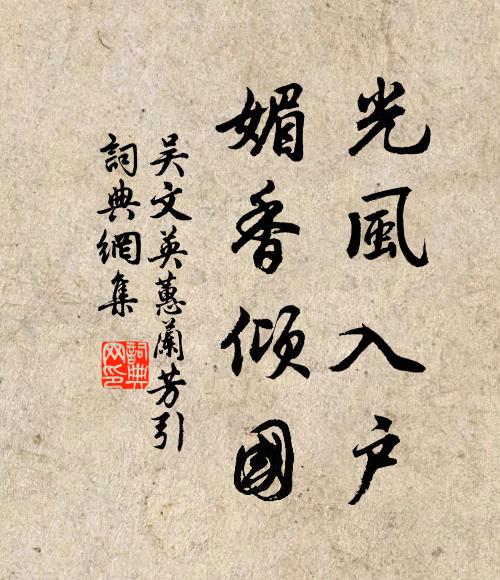 光風入户
媚香傾國
吴文英蕙蘭芳引
詞典網集
詞典網印